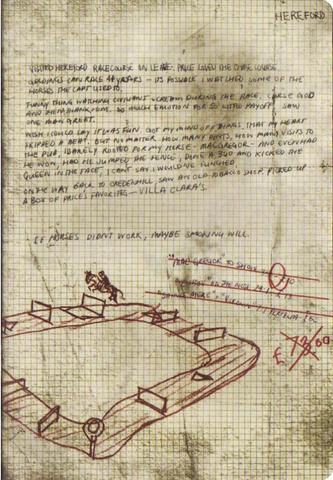 HEREFORD
VISITED HEREFORD RACECOURSE ON LEAVE. PRICE LOVED THE CHASE COURSE.
GELDINGS CAN RACE YEARS - IT'S POSSIBLE I WATCHED SOME OF THE
HORSES THE CAPT USED TO.
FUNNY THING WATCHING CIVILIANS SCREAM DURING THE RACE, CURSE GOD
AND THEN THANK HIM. SO MUCH EMOTION FOR SO LITTLE PAYOFF. SAW
ONE MAN GREET.
WISH I COULD SAY IT WAS FUN. GOT MY MIND OFF THINGS. THAT MY HEART
SKIPPED A BEAT. BUT NO MATTER HOW MANY PINTS, HOW MANY VISITS TO
THE PUB, I BARELY ROOTED FOR MY HORSE - MACGREGOR - AND EVEN HAD
HE WON, HAD HE JUMPED THE FENCE, DONE A 360 AND KICKED THE
QUEEN IN THE FACE, I CAN'T SAY I WOULD'VE FLINCHED.
ON THE WAY BACK TO CREDENHILL SAW AN OLD TOBACCO SHOP. PICKED UP
A BOX OF PRICE'S FAVORITE - VILLA CLARA'S.
- IF HORSES DIDN'T WORK, MAYBE SMOKING WILL.
"MACGREGOR" TO
ON THE NOSE
£